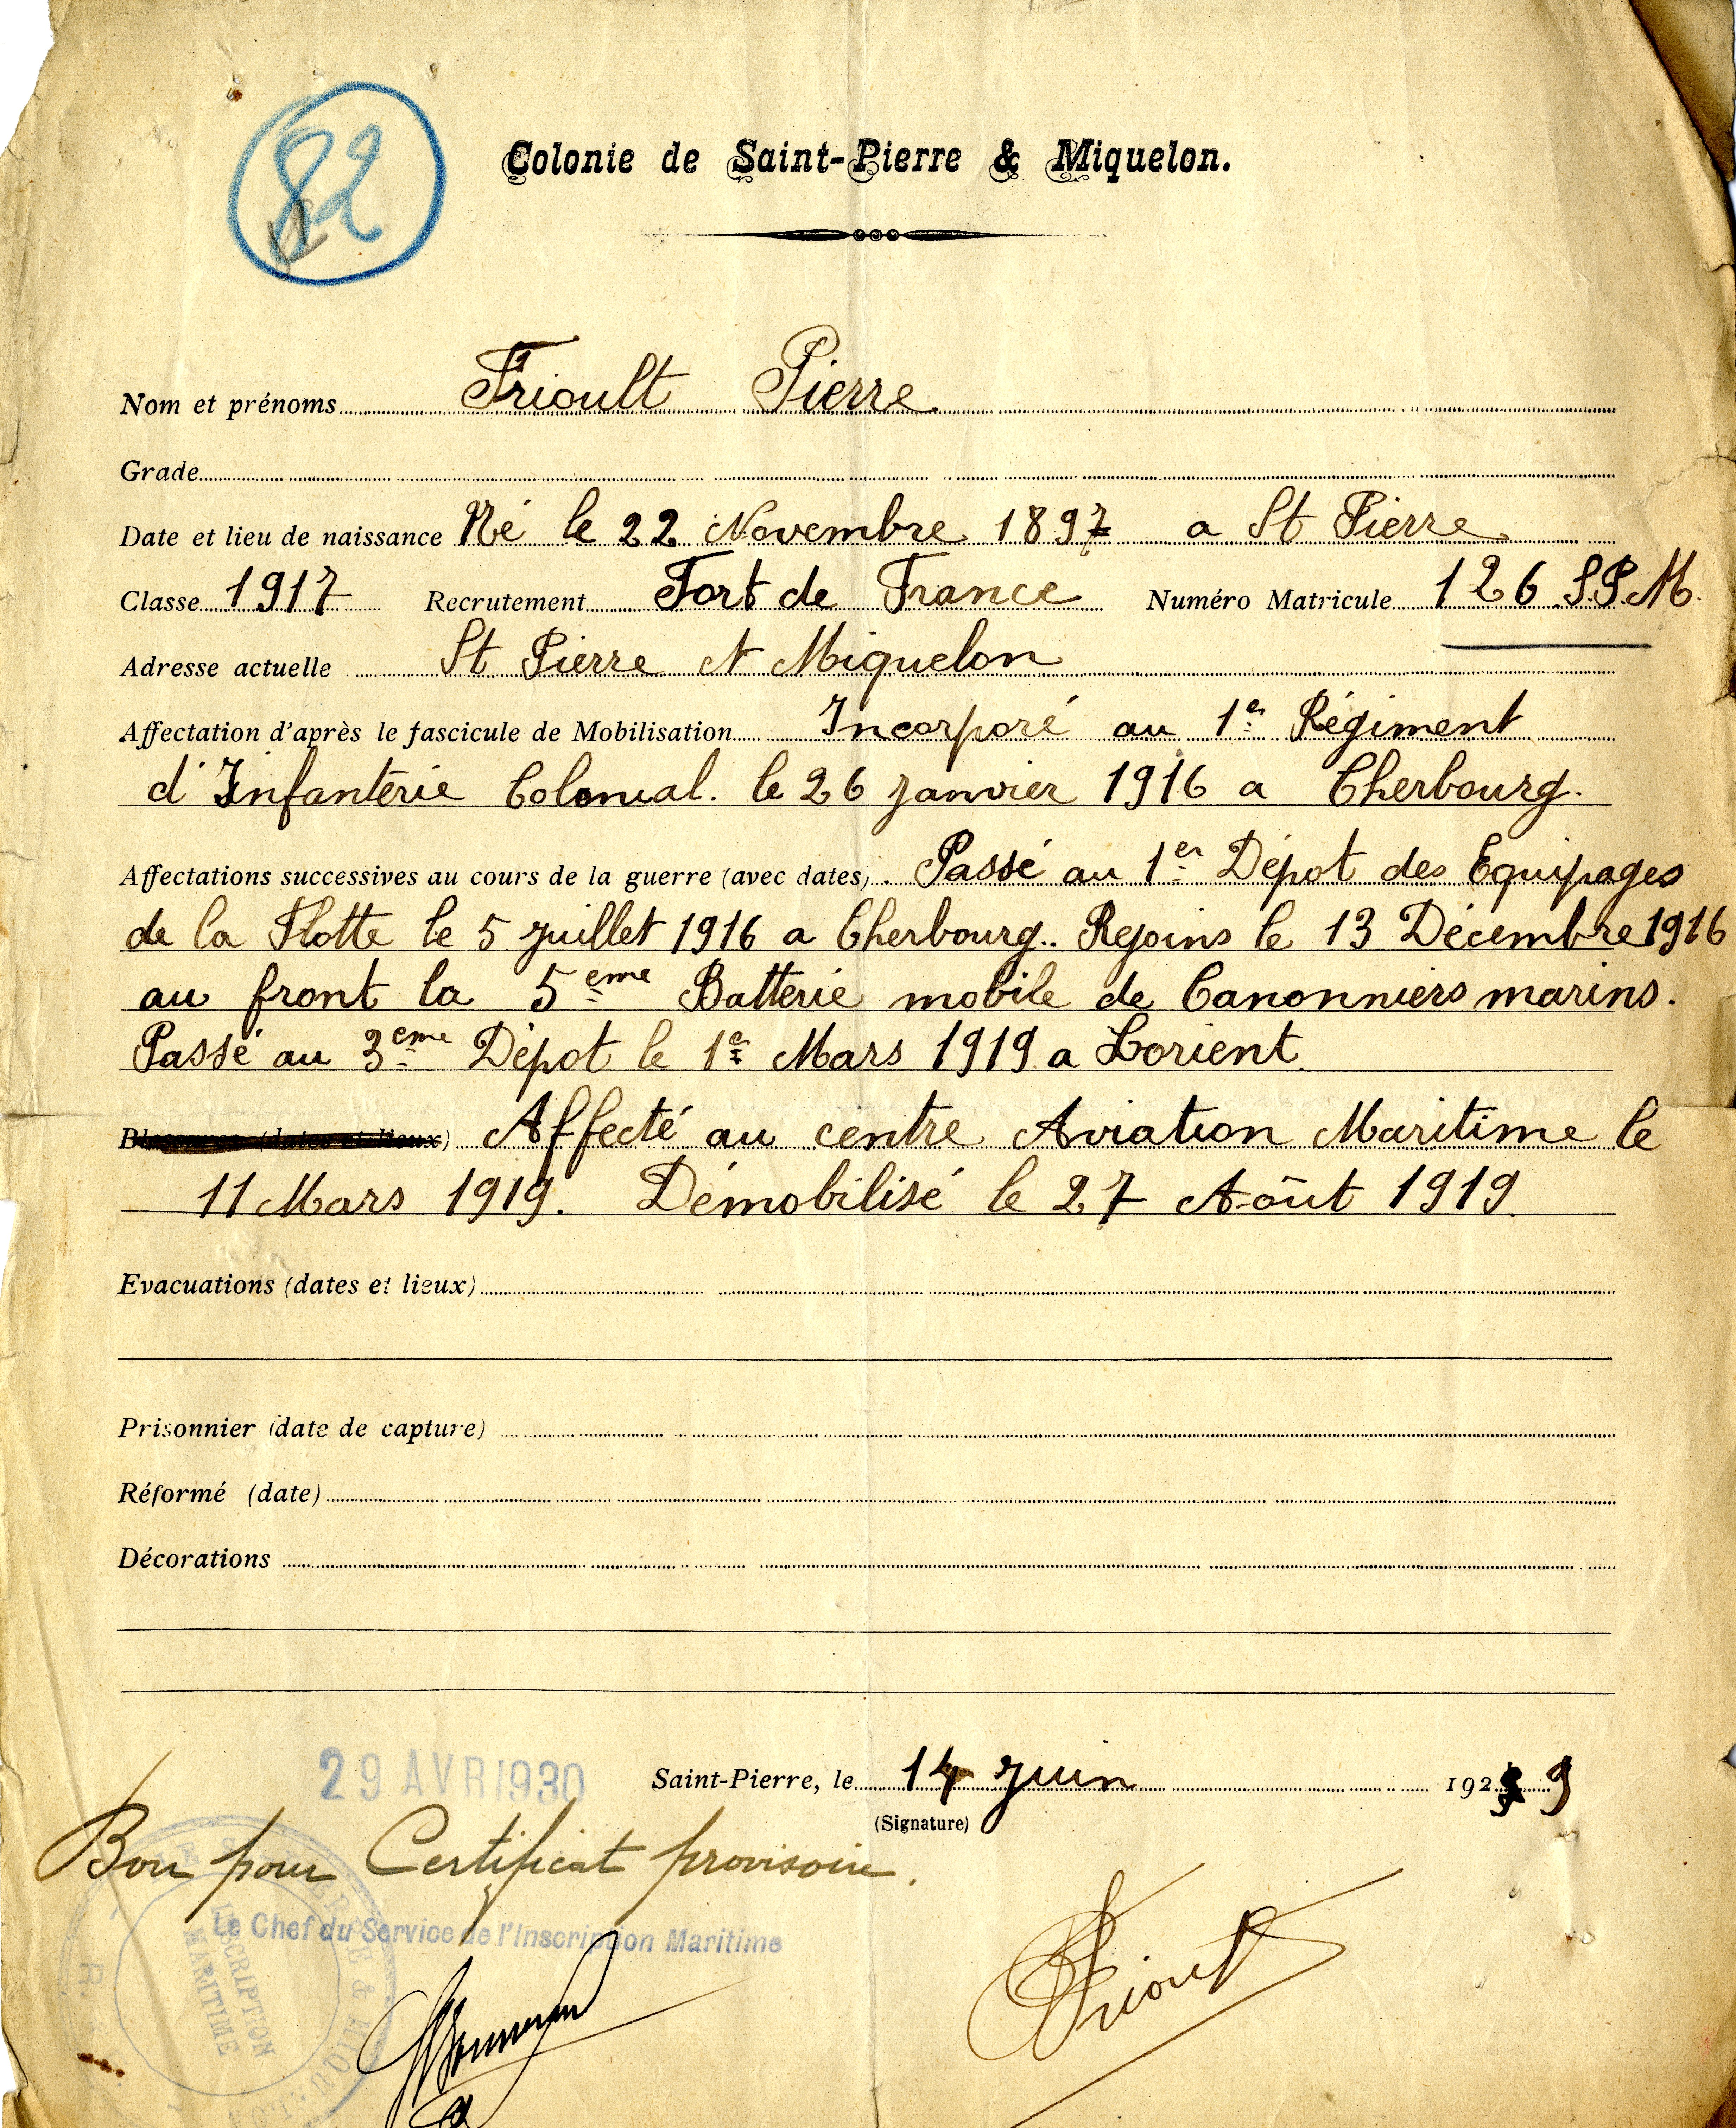 82
Colonie de Saint-Pierre & Miquelon.
Nom et prénoms Frioult Pierre
Grade
Date et lieu de naissance Né le 22 Novembre 1897 a St Pierre
Classe 1917 Recrutement Fort de France Numéro Matricule 126 S.P.M.
Adresse actuelle St Pierre et Miquelon
Affectation d'après le fascicule de Mobilisation Incorporé au 1er Régiment
d'Infanterie Colonial. le 26 janvier 1916 a Cherbourg.
Affectations successives au cours de la guerre (avec dates). Passé au 1er Dépot des Equipages
de la Flotte le 5 juillet 1916 a Cherbourg.. Rejoins le 13 Décembre 1916
au front la 5eme Batterie mobile de Canonniers marins.
Passé au 3eme Dépot le 1er Mars 1919 a Lorient.
Blessures (dates et lieux) Affecté au centre Aviation Maritime le
11 Mars 1919. Démobilisé le 27 Août 1919.
Evacuations (dates et lieux)
Prisonnier (date de capture)
Réformé (date)
Décorations
29 AVR 1930
Saint-Pierre, le 14 juin 192 9
(Signature)
Bon pour Certificat provisoire.
Le Chef du Service de l'Inscription Maritime
INSCRIPTION
MARITIME
Frioult